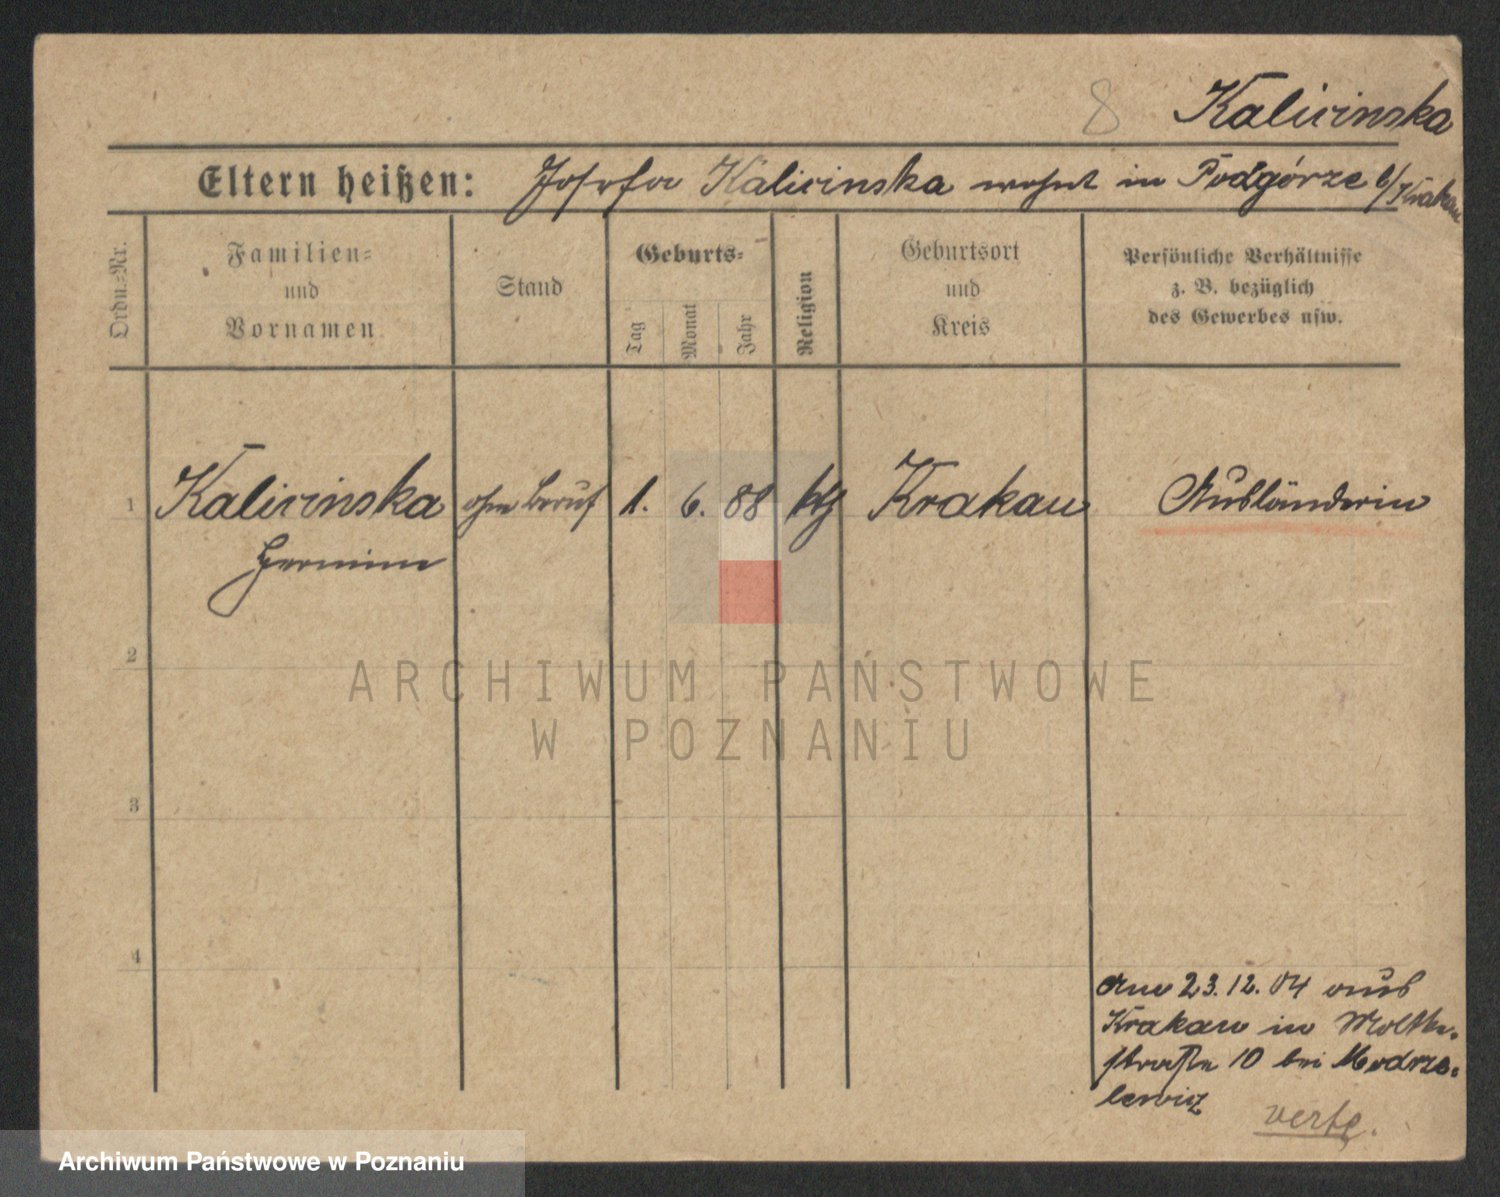 8 Kalicinska
Eltern heißen: Josefa Kalicinska wohnt in Podgórze b/Krakau
Ordn.-Nr.
Familien-
und
Vornamen
Stand
Geburts-
Tag
Monat
Jahr
Religion
Geburtsort
und
Kreis
Persönliche Verhältnisse
z. B. bezüglich
des Gewerbes usw.
1 Kalicinska ohne Beruf 1. 6. 88 ktl Krakau Ausländerin
Hermine
2
3
4
am 23.12.04 aus
Krakau in Moltke-
straße 10 bei Modrze-
lewicz
verte.
ARCHIWUM PAŃSTWOWE
W POZNANIU
Archiwum Państwowe w Poznaniu